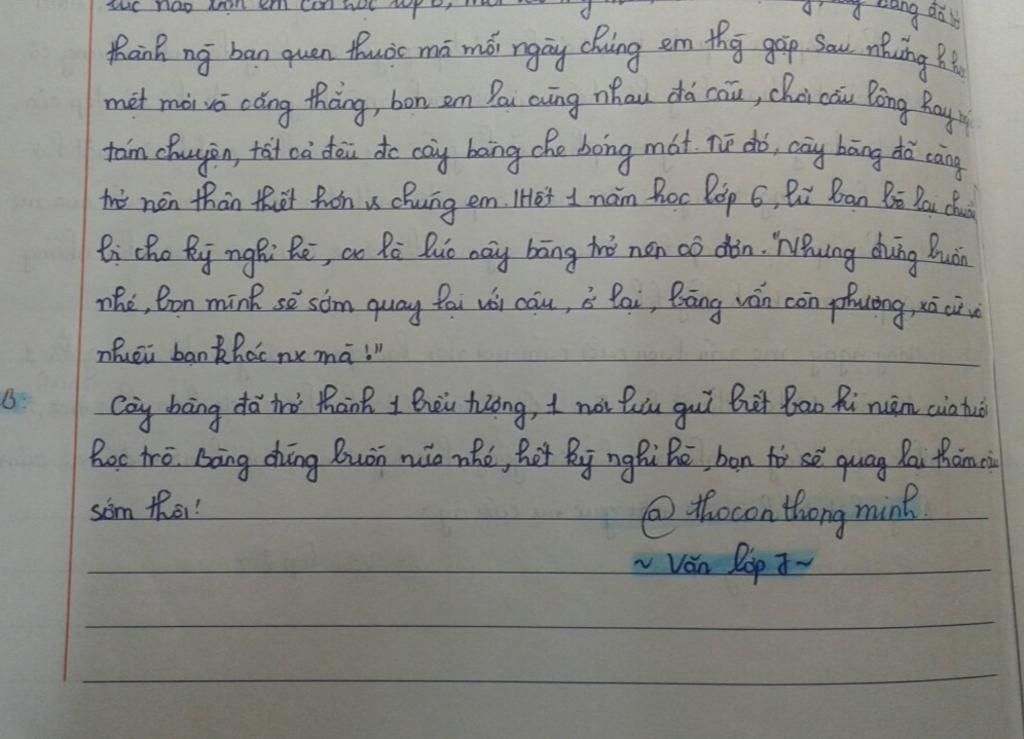 lúc nào còn em còn học lớp 6, bàng đã trở
thành ng̃ bạn quen thuộc mà mỗi ngày chúng em thg̃ gặp. Sau những h học
mệt mỏi và căng thẳng, bọn em lại cùng nhau đá cầu, chơi cầu lông hay
tám chuyện, tất cả đều đc cây bàng che bóng mát. Từ đó, cây bàng đã càng
trở nên thân thiết hơn vs chúng em. Hết 1 năm học lớp 6, lũ bạn bỏ lại chuẩn
bị cho kỳ nghỉ hè, cx là lúc cây bàng trở nên cô đơn. "Nhưng đừng buồn
nhé, bọn mình sẽ sớm quay lại với cậu, ở lại, bàng vẫn còn phượng, xà cừ và
nhiều bạn khác nx mà !"
B:
Cây bàng đã trở thành 1 biểu tượng, 1 nơi lưu giữ biết bao kỉ niệm của tuổi
học trò. Bàng đừng buồn nữa nhé, hết kỳ nghỉ hè, bọn tớ sẽ quay lại thăm cậu
sớm thôi!
@ thocon thong minh.
~ Văn lớp 7 ~